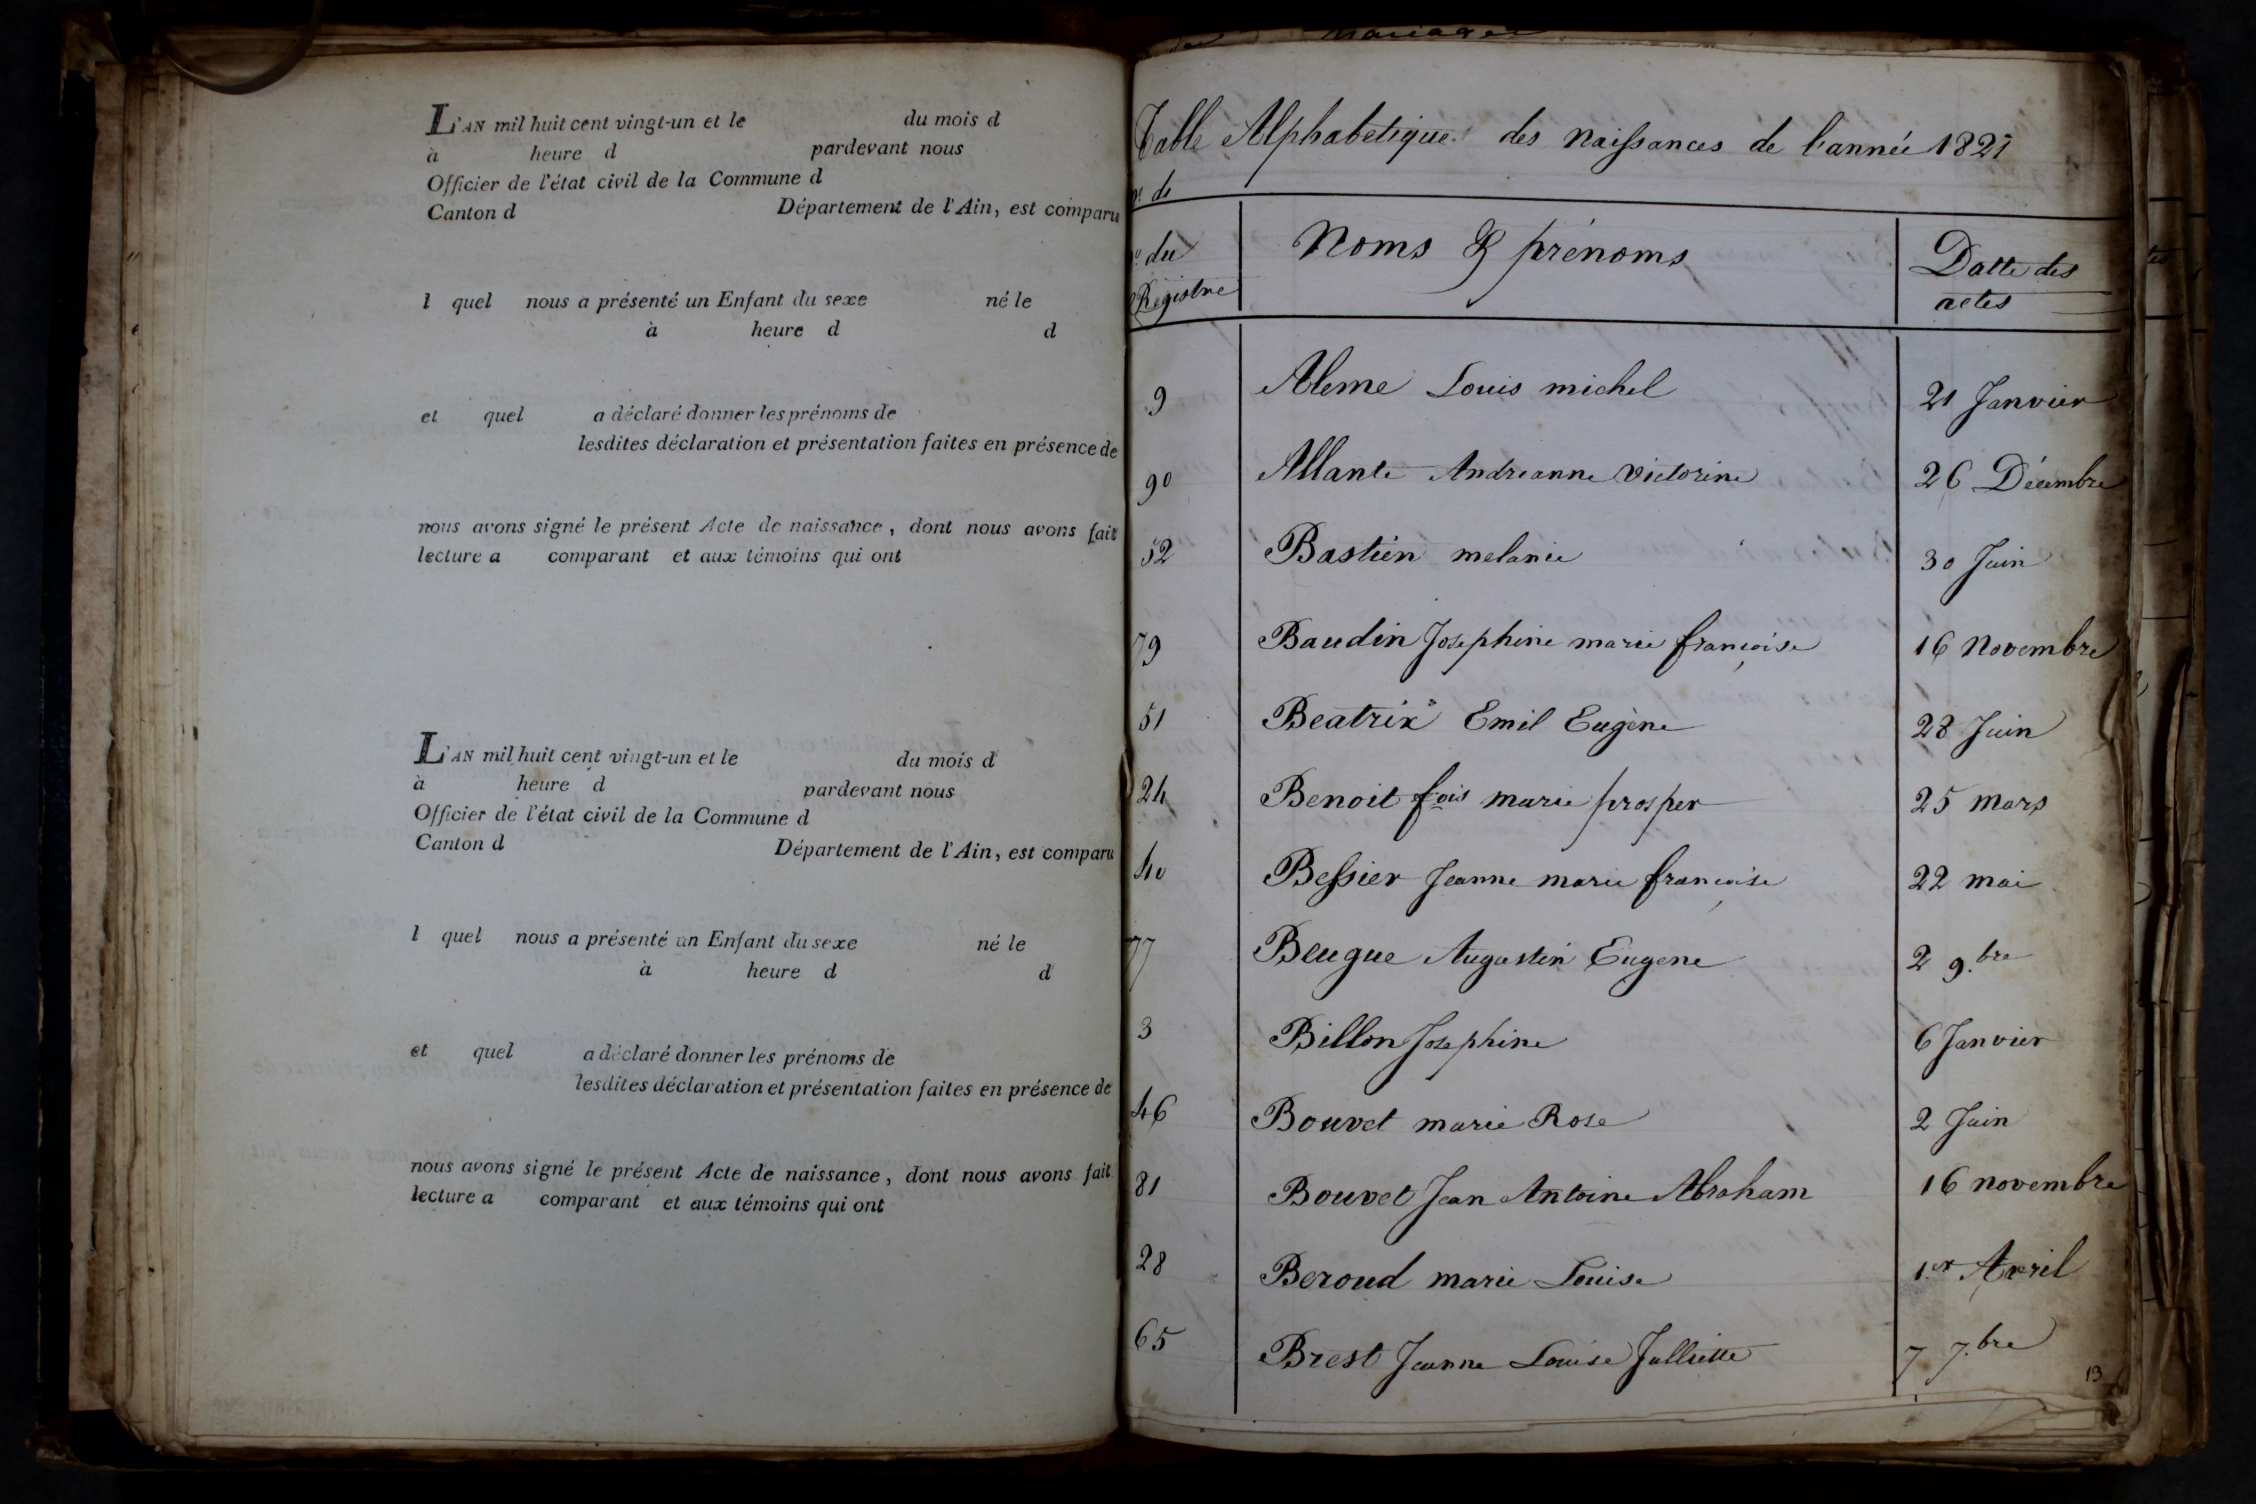 L'AN mil huit cent vingt-un et le du mois d
à heure d pardevant nous
Officier de l'état civil de la Commune d
Canton d Département de l'Ain, est comparu
l quel nous a présenté un Enfant du sexe né le
à heure d d
et quel a déclaré donner les prénoms de
lesdites déclaration et présentation faites en présence de
nous avons signé le présent Acte de naissance, dont nous avons fait
lecture a comparant et aux témoins qui ont
L'AN mil huit cent vingt-un et le du mois d
à heure d pardevant nous
Officier de l'état civil de la Commune d
Canton d Département de l'Ain, est comparu
l quel nous a présenté un Enfant du sexe né le
à heure d d
et quel a déclaré donner les prénoms de
lesdites déclaration et présentation faites en présence de
nous avons signé le présent Acte de naissance, dont nous avons fait
lecture a comparant et aux témoins qui ont
mariages
Table Alphabetique des naissances de l'année 1821
nos de
no du Registre Noms & prénoms Datte des actes
9 Aleme Louis michel 21 Janvier
90 Allante Andreanne victorine 26 Décembre
52 Bastien melanie 30 Juin
79 Baudin Josephine marie françoise 16 Novembre
51 Beatrix Emil Eugène 28 Juin
24 Benoit fois marie prosper 25 mars
40 Bessier Jeanne marie françoise 22 mai
77 Beugue Augustin Eugene 2 9.bre
3 Billon Josephine 6 Janvier
46 Bouvet marie Rose 2 Juin
81 Bouvet Jean Antoine Abraham 16 novembre
28 Beroud marie Louise 1.er Avril
65 Brest Jeanne Louise Julliette 7 7.bre
13